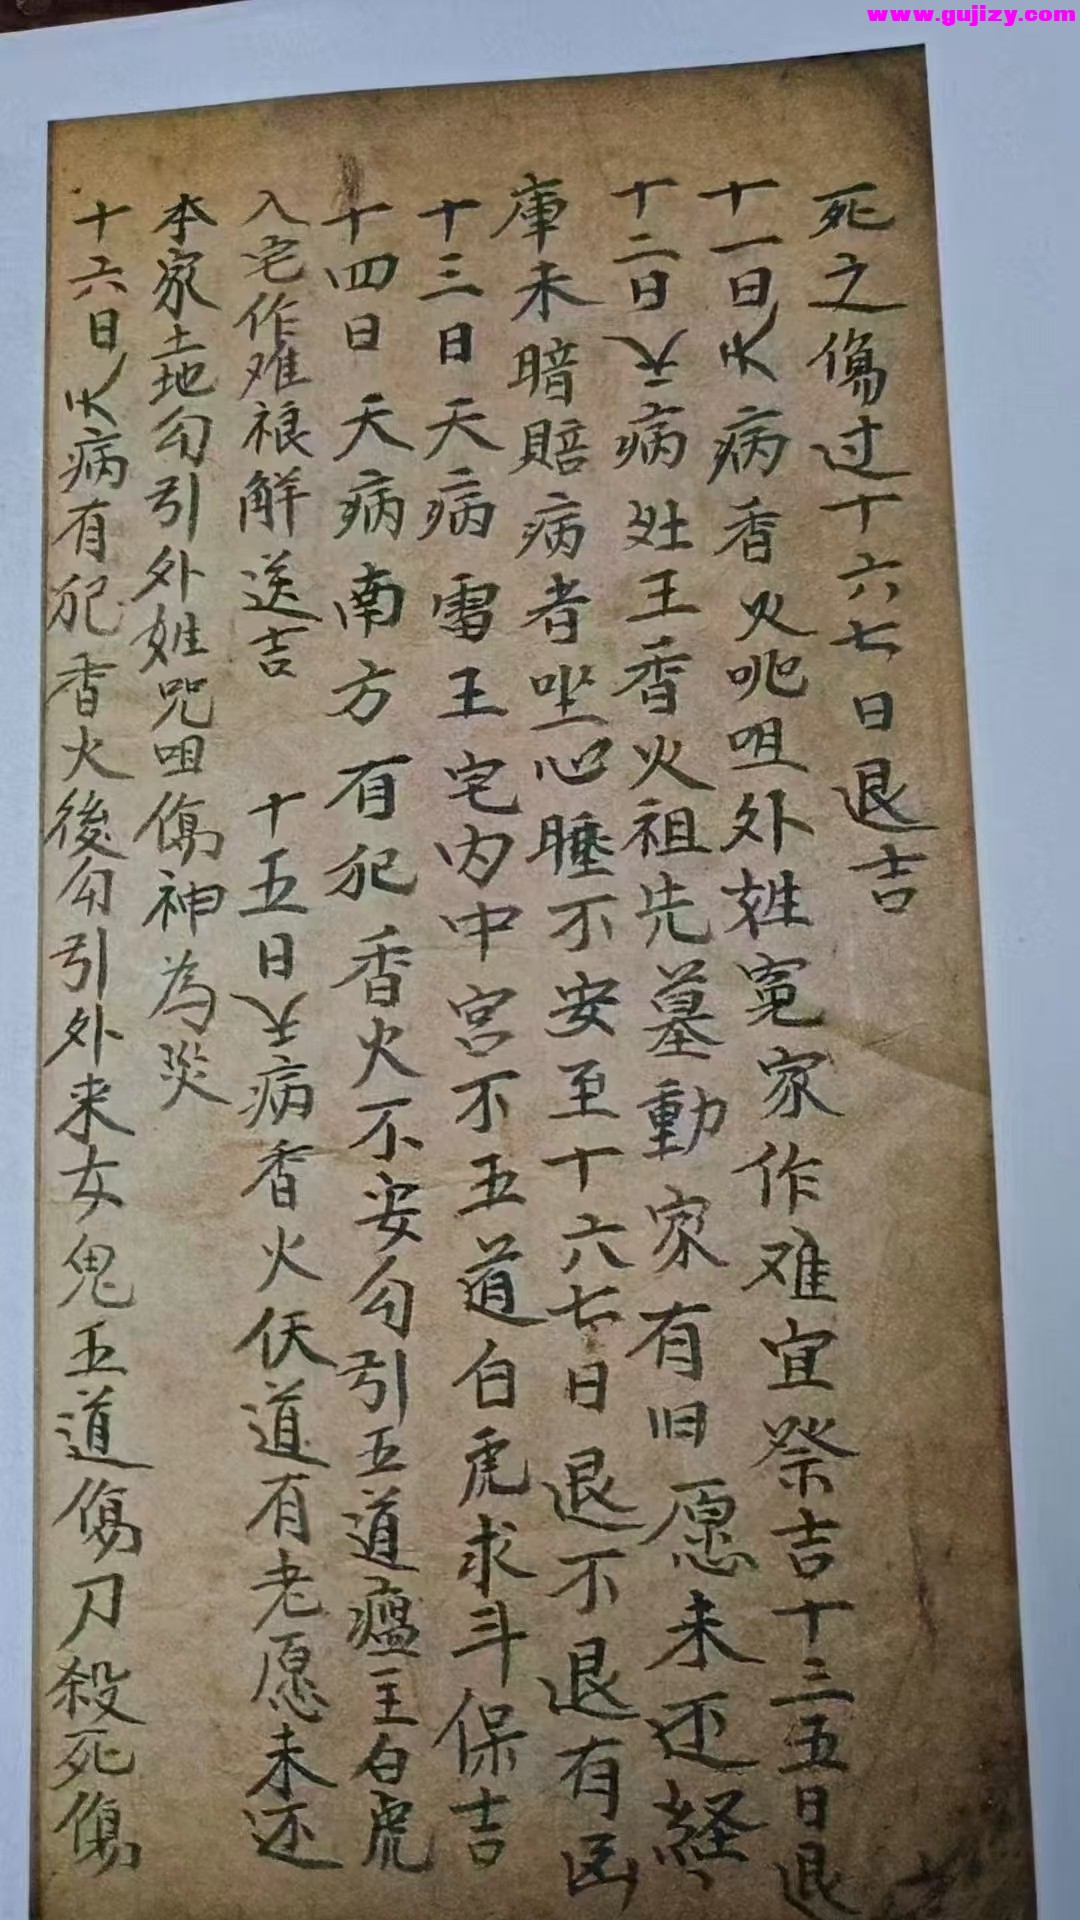 www.gujizy.com
死之傷过十六七日退吉
十一日火病香火咒咀外姓冤家作难宜祭吉十三五日退
十二日病灶王香火祖先墓動家有旧愿未还経
庫未暗賠病者坐心睡不安至十六七日退不退有凶
十三日天病雷王宅内中宮不五道白虎求斗保吉
十四日天病南方有犯香火不安勾引五道瘟王白虎
入宅作难禳解送吉 十五日病香火伏道有老愿未还
本家土地勾引外姓咒咀傷神為災
十六日火病有犯香火後勾引外来女鬼五道傷刀殺死傷